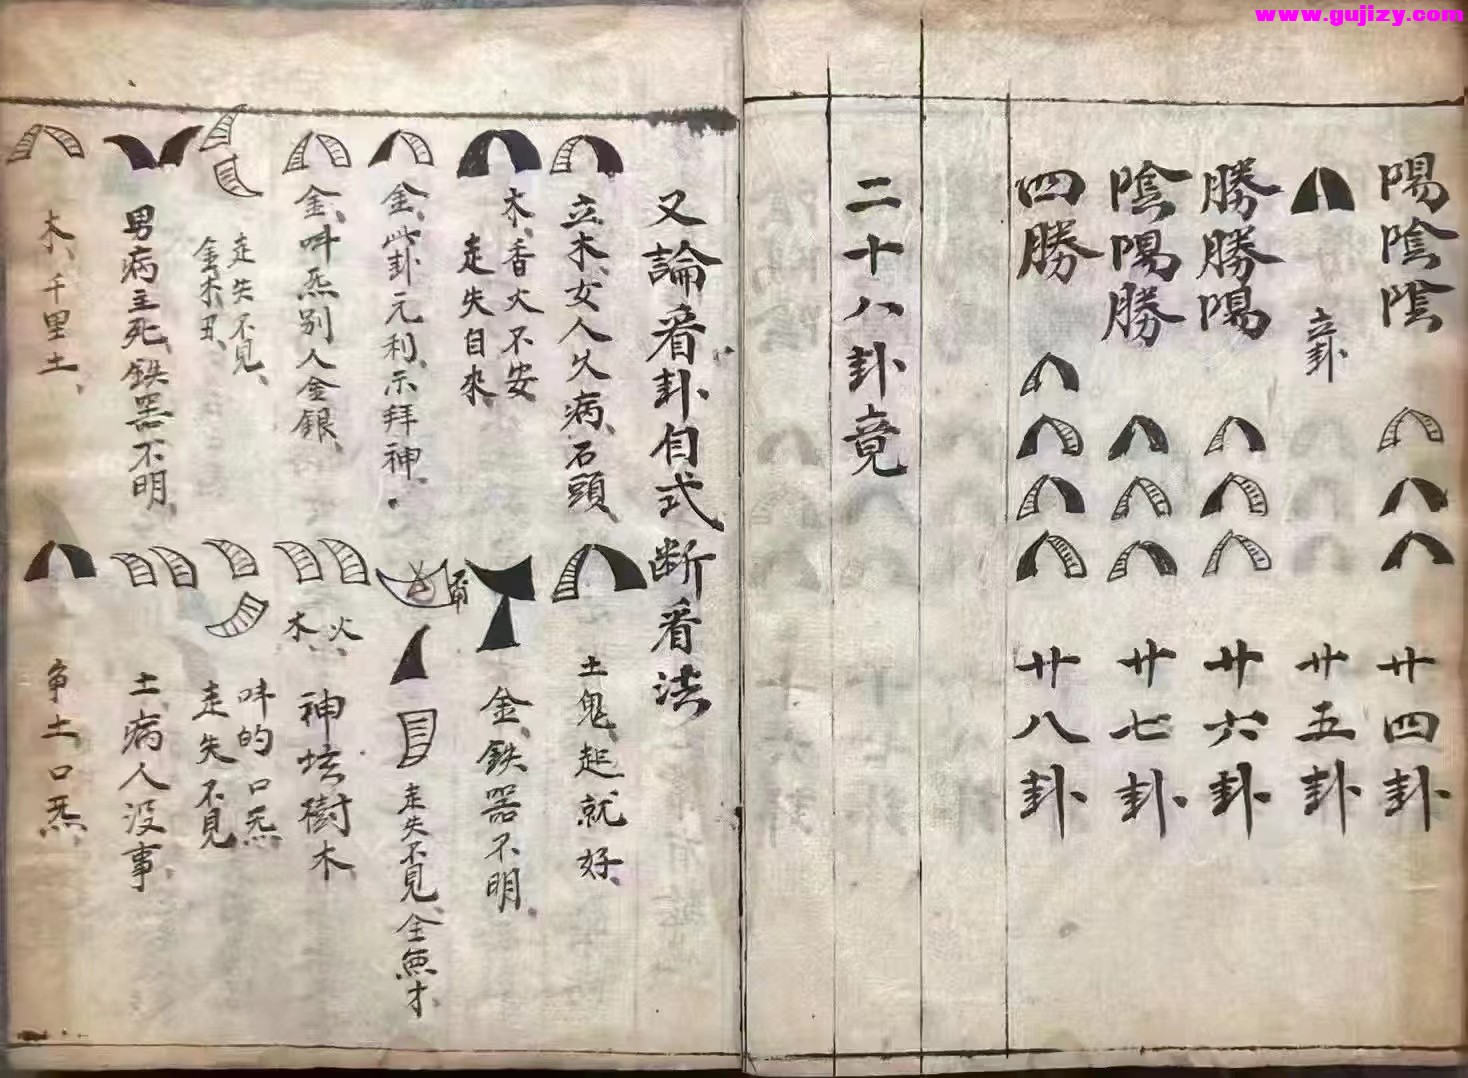 www.gujizy.com
陽陰陰 廿四卦
立卦 廿五卦
勝勝陽 廿六卦
陰陽勝 廿七卦
四勝 廿八卦
二十八卦竟
又論看卦自式断看法
立木、女人久病、石頭、
土鬼起就好、
木、香火不安
走失自来、
金、鉄器不明、
金、此卦元利、示拜神、
走失不見、全魚才、
金、吽炁别人金銀、
木火、
神坛樹木
走失不見、
金木丑、
吽的口炁、
走失不見
男病主死、鉄器不明、
土、病人没事、
木、千里土、
争土口炁、